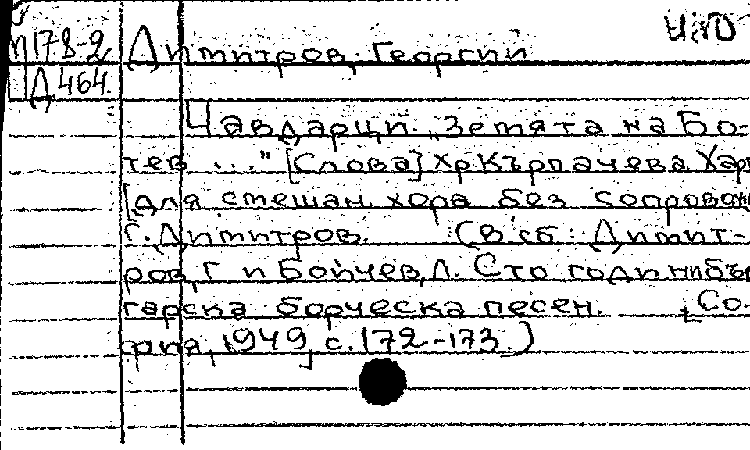 П178-2 Димитров, Георгии
Д464.
Чавдарци. "Зетята на Бо-
тев ..." [Слова] Хр Кърпачева Хар
[для смешан. хора без сопровож
Г. Димитров. (В сб: Димит-
ров, Г и Бойчев, Л. Сто годин бъл
гарска борческа песен. , Со-
фия, 1949, с. 172-173.)